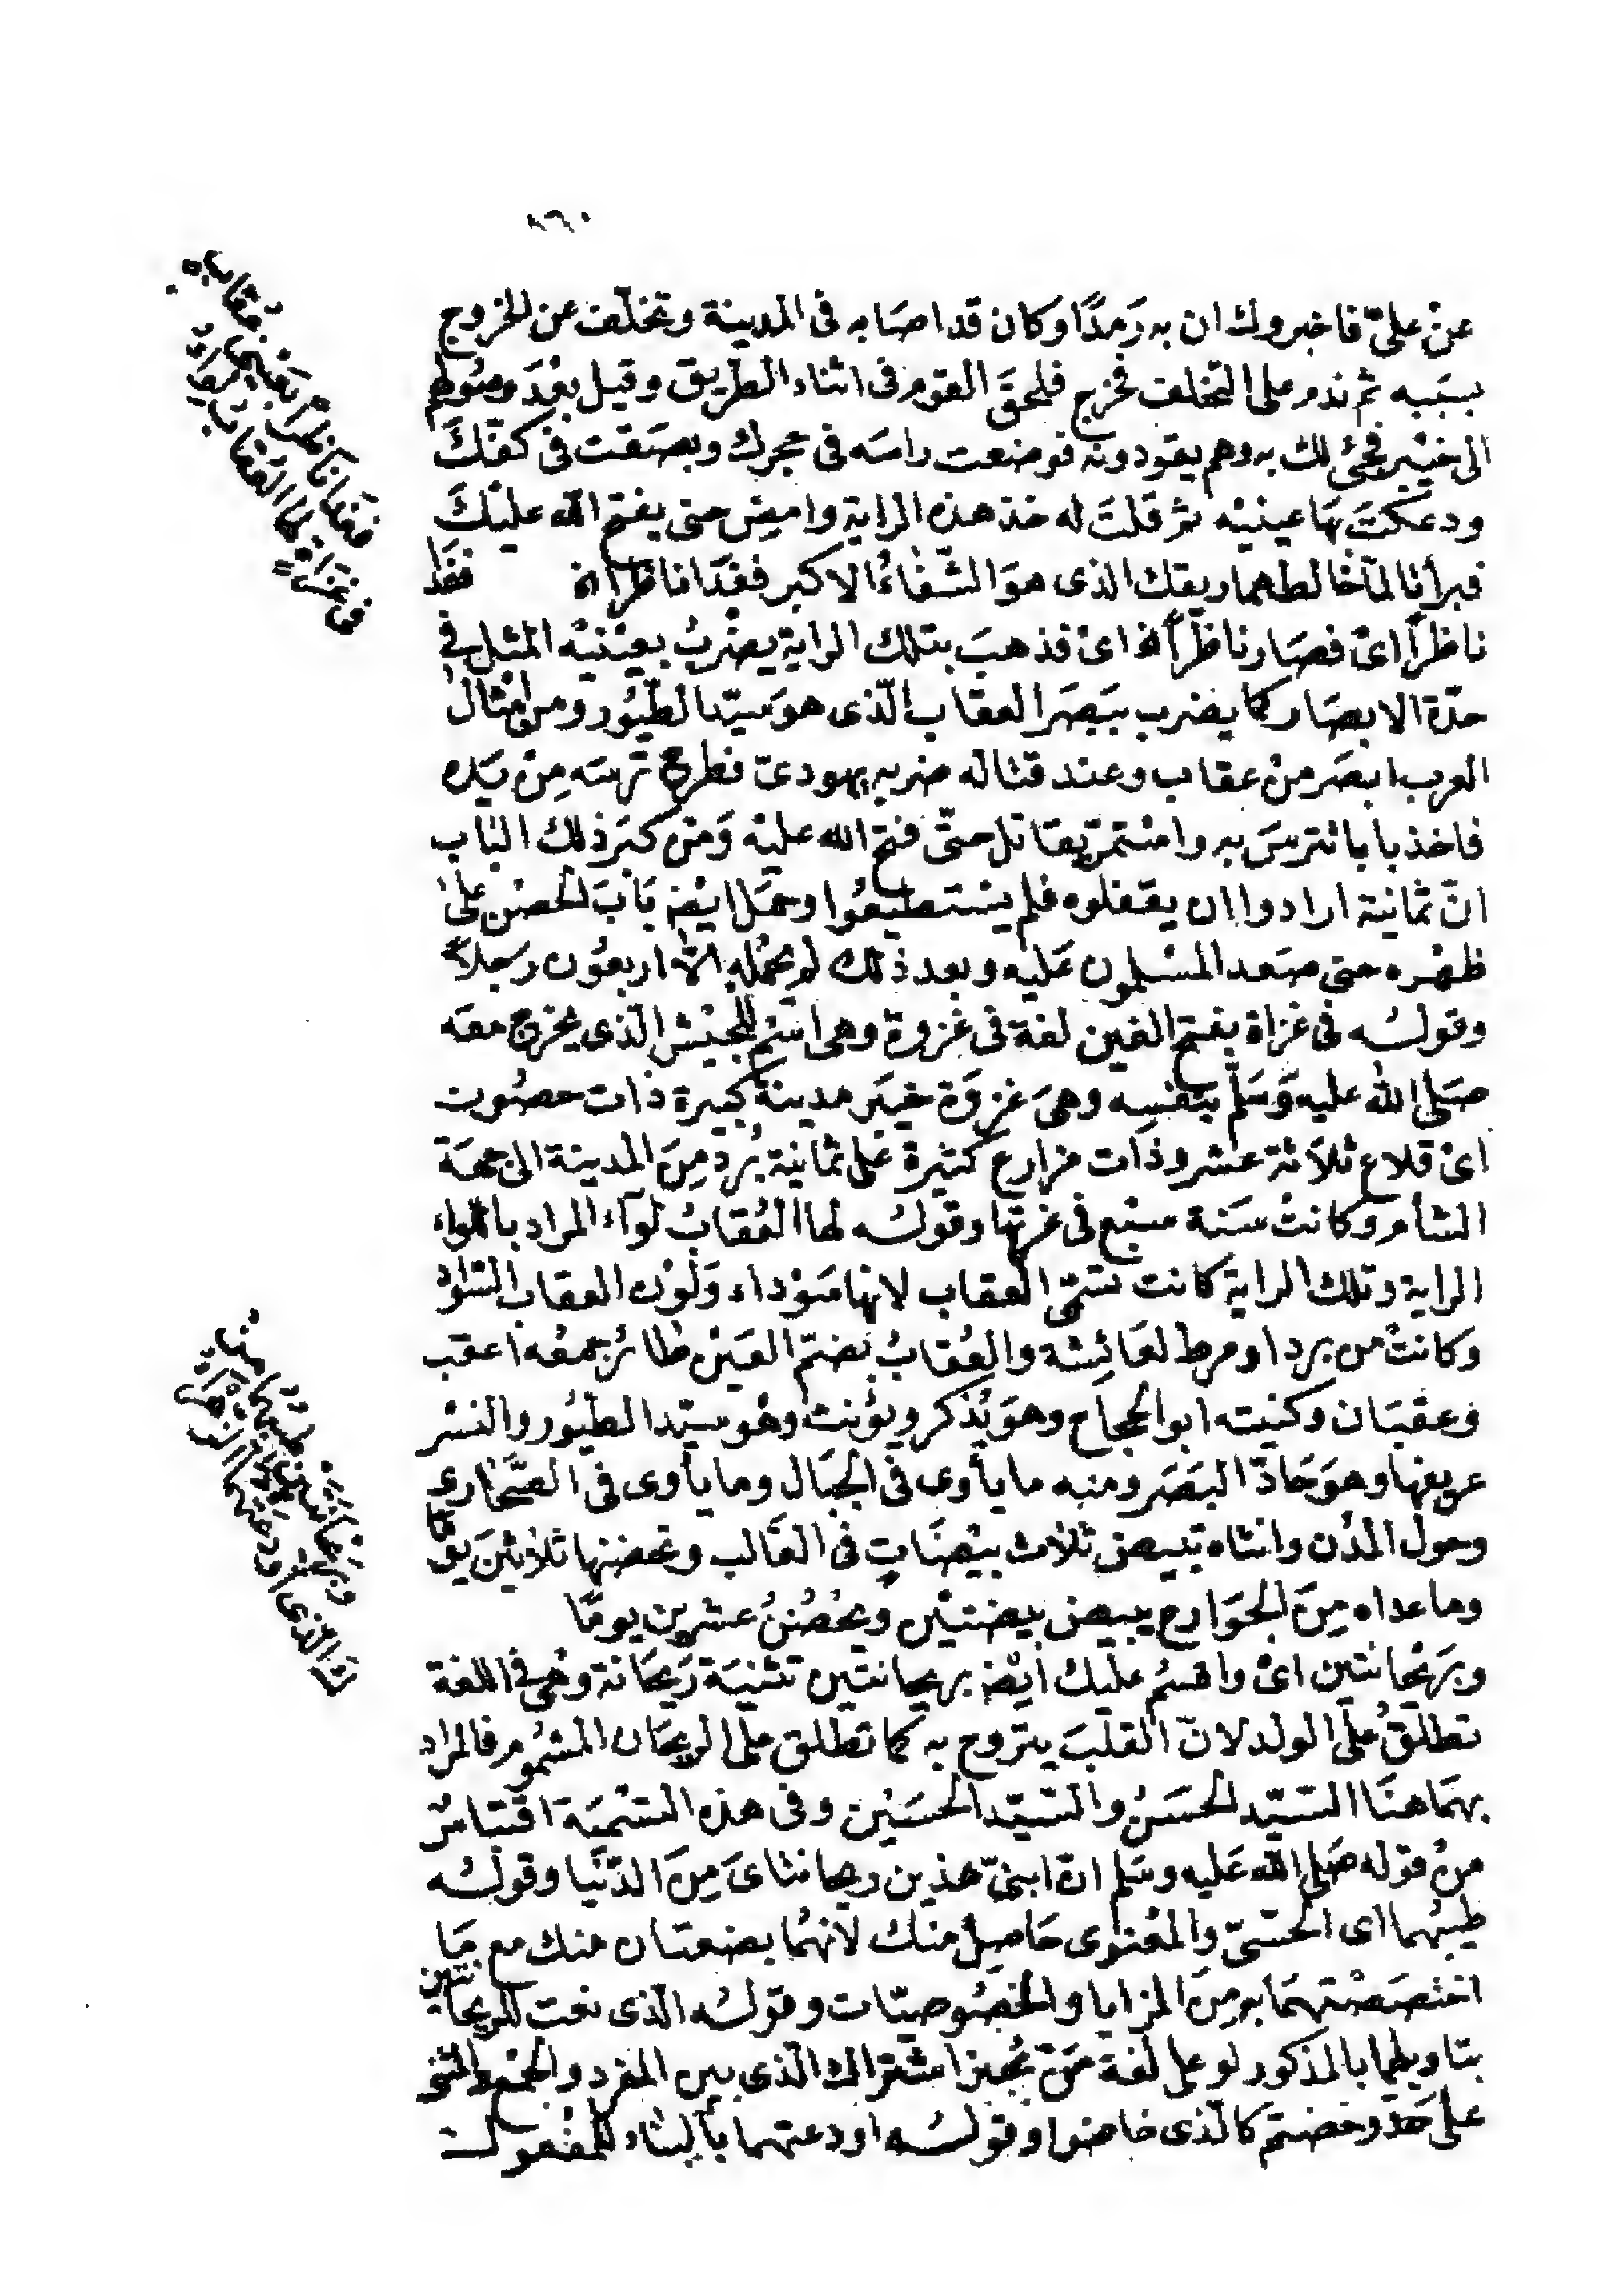 ٨٦٠
عنْ علىّ فاخبروك ان به رَمدًا وكان قد اصَابه فى المدينة وتخلّف عن الخروج
بسَببه ثم ندم على التخلف فخرج فلحقَ القوم فى اثناء الطريق وقيل بعْدَ وصُولهم
الى خيْبر فجئ لك به وهم يقودونه فوضعت راسَه فى حجرك وبصَقت فى كفّكَ
ودعكتَ بهَا عينيْه ثم قلتَ له خذ هذه الراية وامضِ حتى يفتح الله عليْكَ
فبرأتا لمّا خالطهما ريقك الذى هوَ الشّفاءُ الاكبر فغدَا ناظرا الخ فغدا
ناظراً اىْ فصَار ناظراً الخ اىْ فذهبَ بتلك الراية يضْربُ بعيْنيْه المثل فى
حدّة الابصَار كما يضرب ببَصَر العقاب الّذى هوَ سيّد الطيُور ومن امْثال
العرب ابصَر منْ عقاب وعند قتاله ضربه يهودىّ فطرحَ ترسَه مِنْ يَده
فاخذ بابا تترسَ به واسْتمرّ يقاتل حتّى فتح الله عليْه وَمنْ كبَر ذلك البَاب
انّ ثمانية ارادوا ان يقلبوه فلم يسْتطيعُوا وحمَل ايْضا بَابَ الحصْن علىٰ
ظهْره حتى صَعد المسْلمون عَليْه وبعد ذلك لم يحْمله الاّ اربعُون رَجلاً
وقولُـه فى غزاة بفتح الغين لغة فى غزوة وهى اسْم للجيْش الّذى يخرج معَه
صَلى الله عليه وَسَلّم بنفسِه وهىَ غزوَة خيبَر مدينة كبيرة ذات حصُون
اىْ قلاع ثلاَثة عشر وذات مزارع كثيرة عَلى ثمانية بُرُد مِنَ المدينة الى جهَة
الشأم وكانتْ سَنة سبْع فى غرتها وقولُـه لها العُقابُ لوَآء المراد باللواء
الراية وتلك الراية كانت تسَمّى العقاب لانها سَوْداء وَلوْن العقاب السّوَاد
وَكانتْ من برد او مرط لعَائِشة والعُقابُ بضمّ العَيْن طائرُ جمعُه اعقب
وَعقبَان وكنيته ابو الحجاج وهوَ يُذكر ويُؤنث وهُو سيّد الطيُور والنسْر
عريفها وهوَ حَادّ البَصَر ومنه ما يأوى فى الجبَال وما يأوى فى الصّحَارى
وحول المدُن وانثاه تبيض ثلاث بيْضَاتٍ فى الغَالب وتحضنها ثلاثينَ يَوْما
وما عداه مِنَ الجوَارح يبيض بيضتيْن ويحْضُنُ عشرين يومًا
وبرَيْحانتين اىْ واقسُم عليْك ايْضا بريحانتين تثنيَة رَيحَانة وهْىَ فى اللغة
تطلقُ علَى الولد لانّ القلبَ يتروح به كما تطلق على الريحَان المشمُوم فالمراد
بهمَا هنَا السّيّد الحسَنُ والسّيّد الحسَيْن وفى هذه التسْميَة اقتباسٌ
منْ قوله صَلى الله عَليه وسَلم انّ ابنىّ هذين ريحانتاىَ مِنَ الدّنيَا وقولُـه
طيبُهما اى الحسّىّ والمعْنوى حَاصِلٌ منْك لانهمُا بضعَتان منك مع مَا
اختصَصْتهمَا به مِنَ المزايا والخصُوصيّات وقولُـه الّذى نعت للريحانتين
بتاويلهما بالمذكور او على لغة مَنْ يُجيز اشتراك الّذى بين المفرد والجمْع والتثنية
على حَدّ وخضتم كالّذى خاضوا وقولُـه اودعتهما بالبنَاء للمفْعولِ
فغَدَا ناظرًا بعَيْنَىْ عُقابٍ
فى غَزَاةٍ لهَا العُقابُ لِوَاءُ
وَبرَيْحَانَتَيْنِ طِيبُهُمَا مِنْـ
ـكَ الّذى اُودِعَتْهُمَا الزّهْرَاءُ